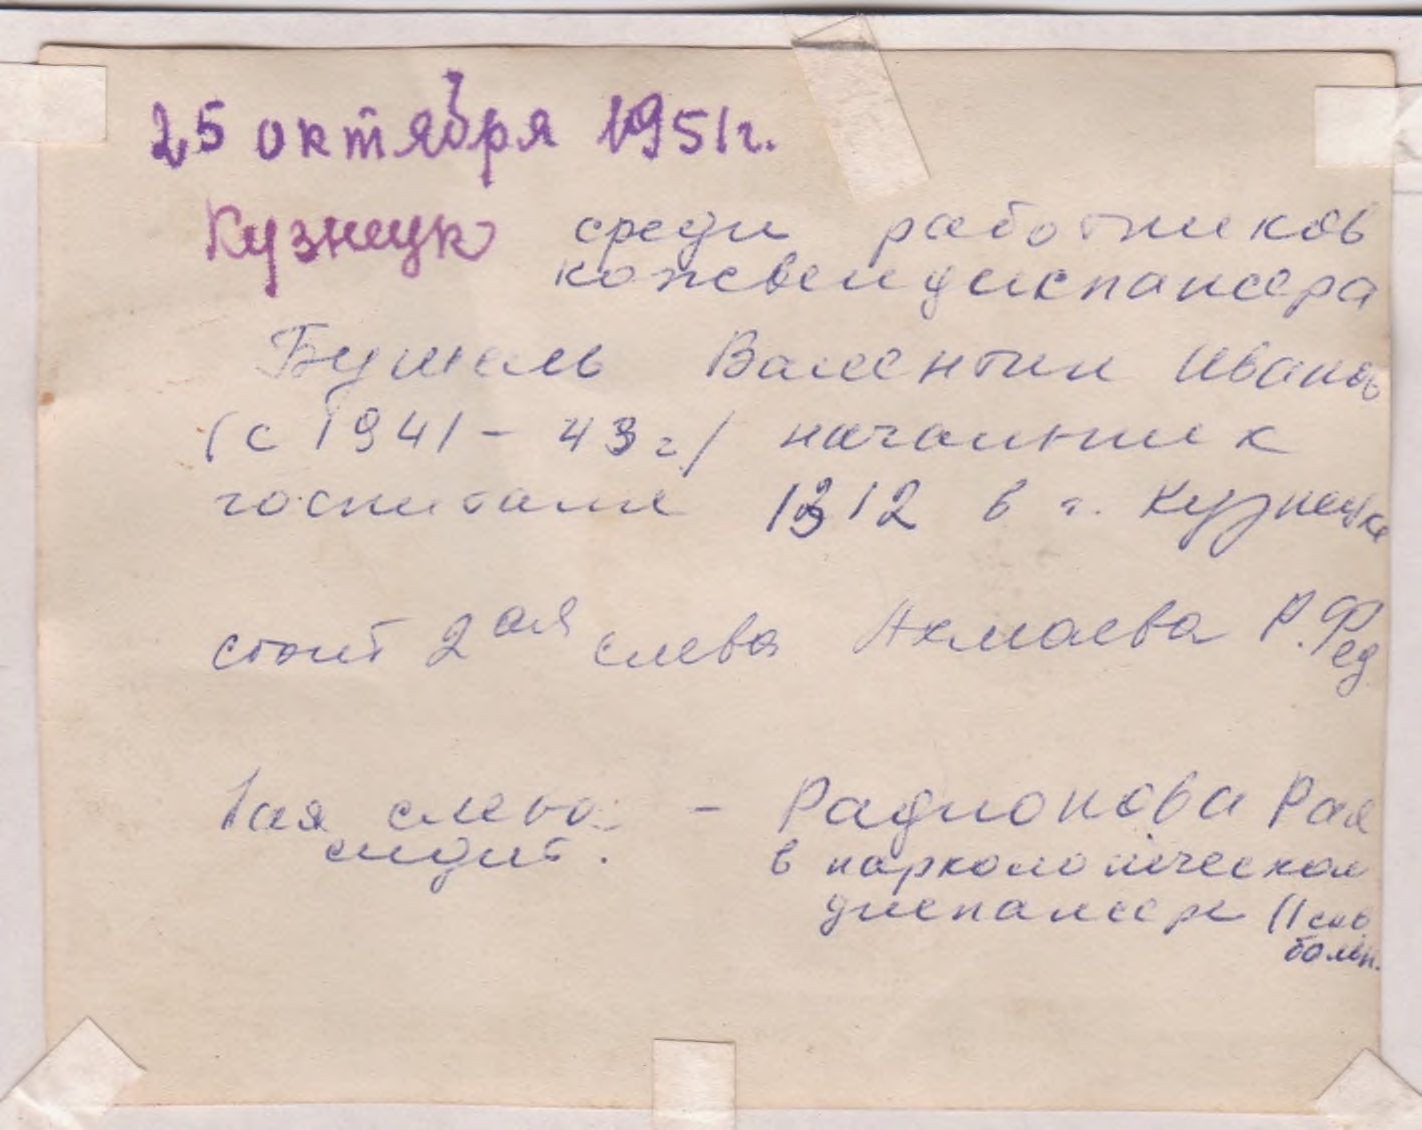 25 октября 1951г.
Кузнецк среди работников
кожвендиспансера
Бушель Валентин Иванов
(с 1941 - 43 г) начальник
госпиталя 1312 в г. Кузнецке
стоит 2ая слева Акмаева Р. Фед
1ая слева - Радионова Рая
сидит.
в наркологическом
диспансере (1 сов
больн.